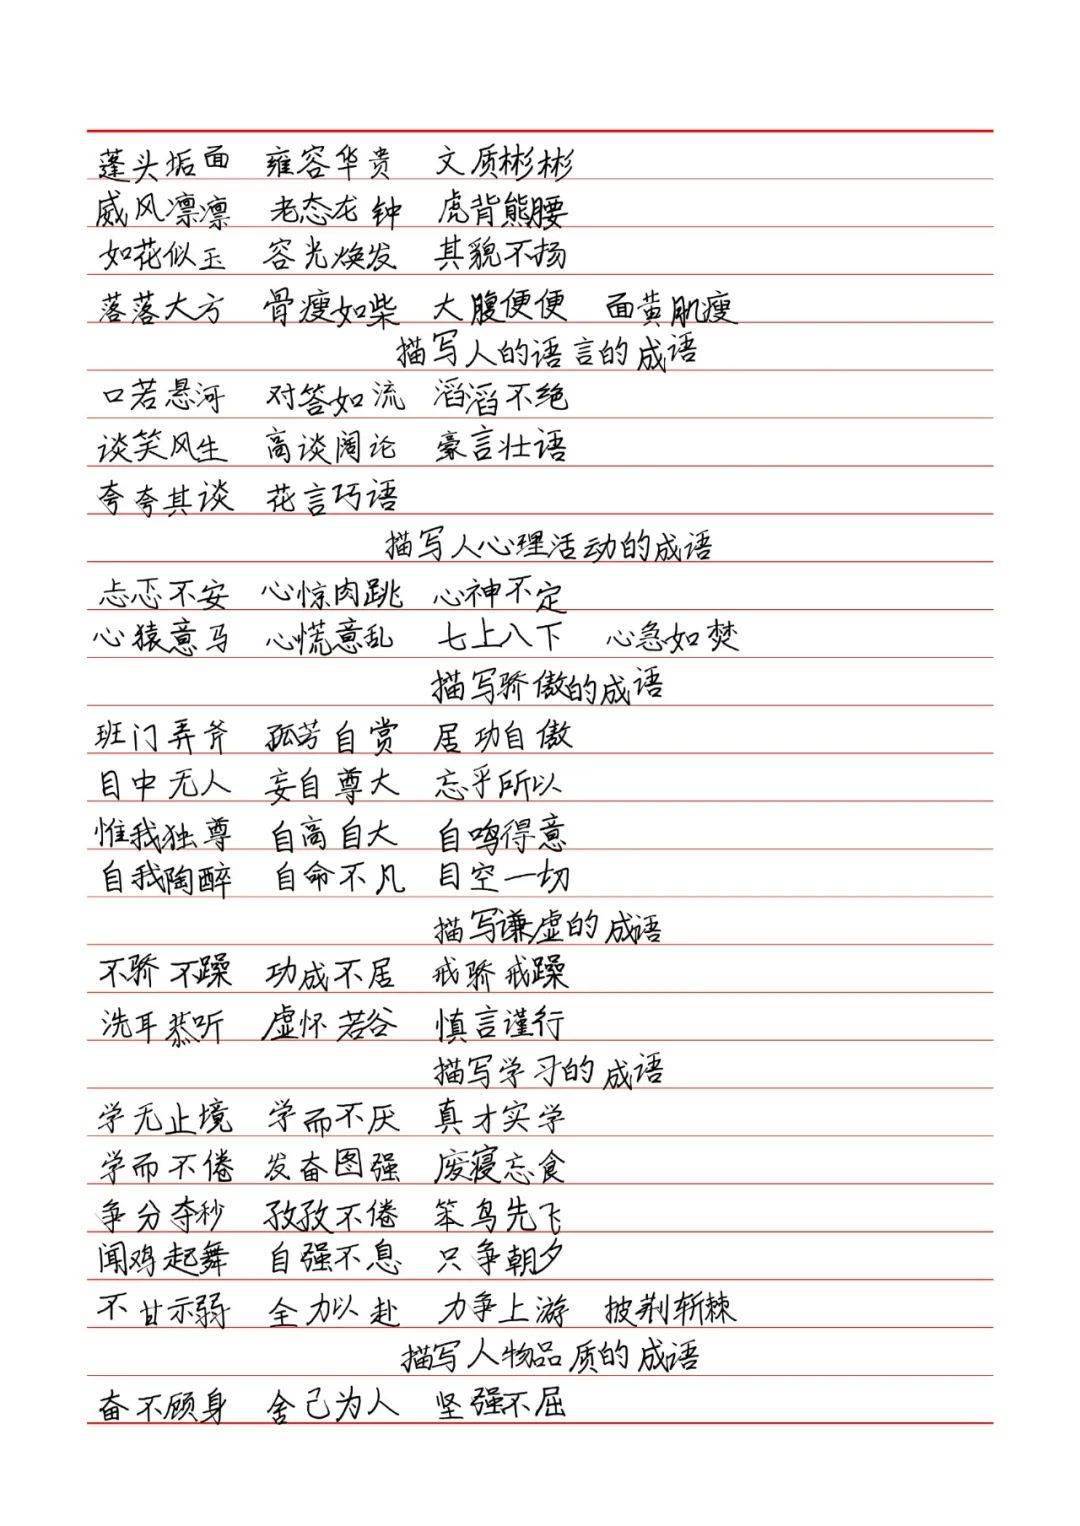 蓬头垢面 雍容华贵 文质彬彬
威风凛凛 老态龙钟 虎背熊腰
如花似玉 容光焕发 其貌不扬
落落大方 骨瘦如柴 大腹便便 面黄肌瘦
描写人的语言的成语
口若悬河 对答如流 滔滔不绝
谈笑风生 高谈阔论 豪言壮语
夸夸其谈 花言巧语
描写人心理活动的成语
忐忑不安 心惊肉跳 心神不定
心猿意马 心慌意乱 七上八下 心急如焚
描写骄傲的成语
班门弄斧 孤芳自赏 居功自傲
目中无人 妄自尊大 忘乎所以
惟我独尊 自高自大 自鸣得意
自我陶醉 自命不凡 目空一切
描写谦虚的成语
不骄不躁 功成不居 戒骄戒躁
洗耳恭听 虚怀若谷 慎言谨行
描写学习的成语
学无止境 学而不厌 真才实学
学而不倦 发奋图强 废寝忘食
争分夺秒 孜孜不倦 笨鸟先飞
闻鸡起舞 自强不息 只争朝夕
不甘示弱 全力以赴 力争上游 披荆斩棘
描写人物品质的成语
奋不顾身 舍己为人 坚强不屈